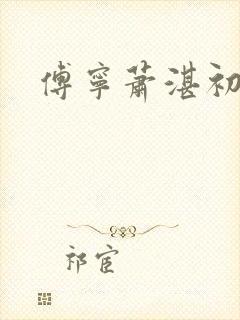 傅寧蕭湛初
祁宦